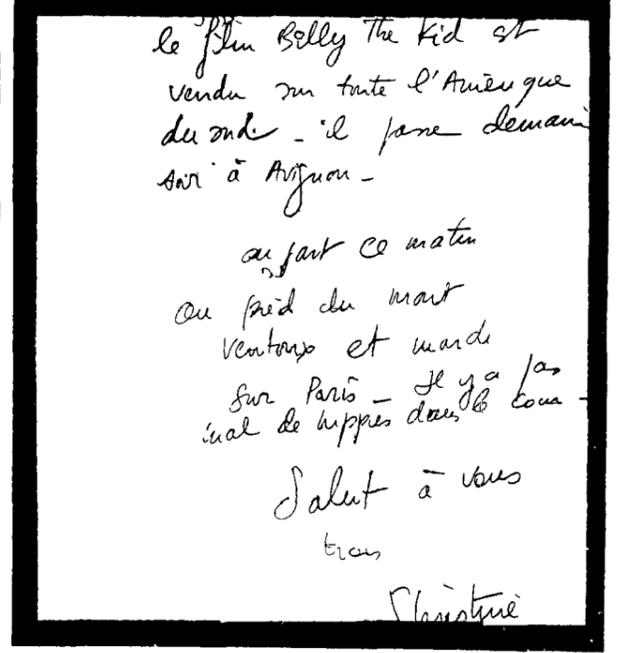 le film Billy The Kid est
vendu sur toute l'Amérique
du sud - il passe demain
soir à Avignon -
on part ce matin
au pied du mont
Ventoux et mardi
sur Paris - Il y a pas
mal de hippies dans le
Salut à vous
trois
Christine